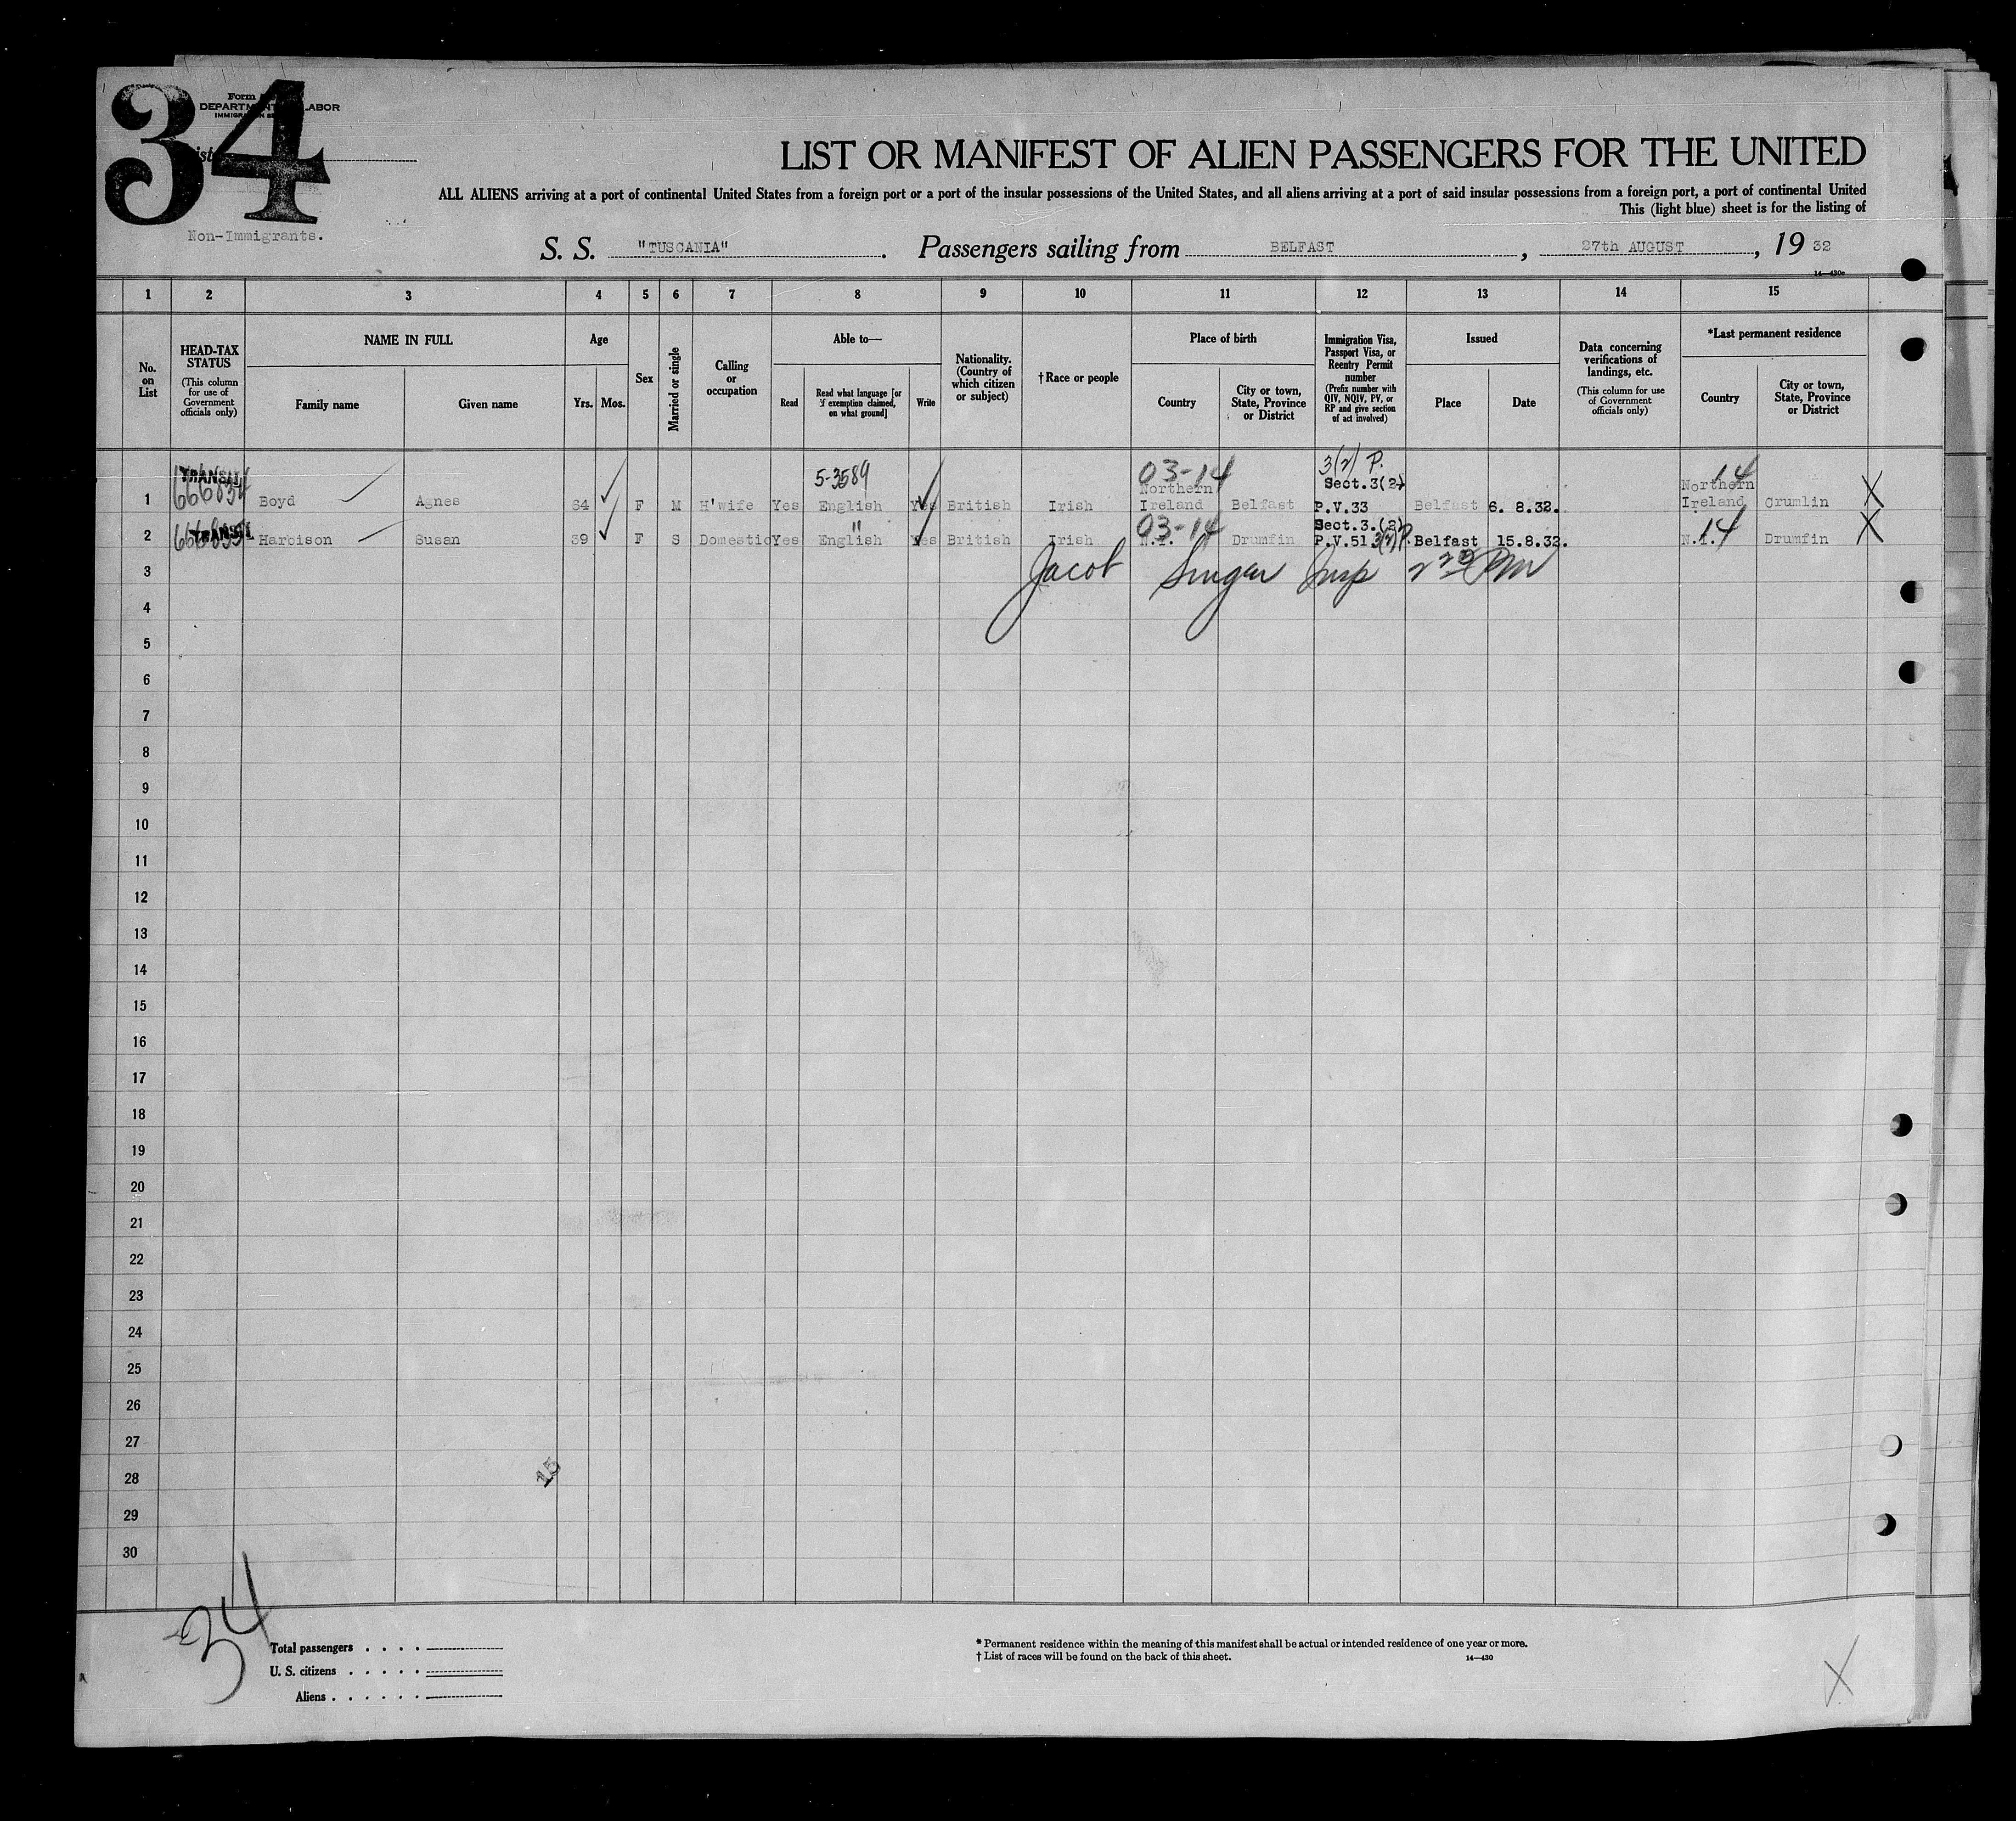 34
Form
DEPARTMENT LABOR
Non-Immigrants.
LIST OR MANIFEST OF ALIEN PASSENGERS FOR THE UNITED
ALL ALIENS arriving at a port of continental United States from a foreign port or a port of the insular possessions of the United States, and all aliens arriving at a port of said insular possessions from a foreign port, a port of continental United
This (light blue) sheet is for the listing of
S. S. "TUSCANIA". Passengers sailing from BELFAST, 27th AUGUST, 19 32
14—430c
1 2 3 4 5 6 7 8 9 10 11 12 13 14 15
No. on List
HEAD-TAX STATUS
(This column for use of Government officials only)
NAME IN FULL
Family name
Given name
Age
Yrs. Mos.
Sex
Married or single
Calling or occupation
Able to—
Read
Read what language [or if exemption claimed, on what ground]
Write
Nationality. (Country of which citizen or subject)
†Race or people
Place of birth
Country
City or town, State, Province or District
Immigration Visa, Passport Visa, or Reentry Permit number
(Prefix number with QIV, NQIV, PV, or RP and give section of act involved)
Issued
Place
Date
Data concerning verifications of landings, etc.
(This column for use of Government officials only)
*Last permanent residence
Country
City or town, State, Province or District
TRANSIT 5-3589 03-14 3(2) P. 14
Northern Sect.3(2) Northern
1 Boyd Agnes 64 F M H'wife Yes English Yes British Irish Ireland Belfast P.V.33 Belfast 6. 8.32. Ireland Crumlin X
TRANSIT " 03-14 Sect.3.(2) 14
2 Harbison Susan 39 F S Domestic Yes English Yes British Irish N.I. Drumfin P.V.51 3(2) P. Belfast 15.8.32. N.I. Drumfin X
3 Jacob Singer Insp
4
5
6
7
8
9
10
11
12
13
14
15
16
17
18
19
20
21
22
23
24
25
26
27
28 15
29
30
34
Total passengers . . . .
U. S. citizens . . . . .
Aliens . . . . . .
* Permanent residence within the meaning of this manifest shall be actual or intended residence of one year or more.
† List of races will be found on the back of this sheet. 14—430
X